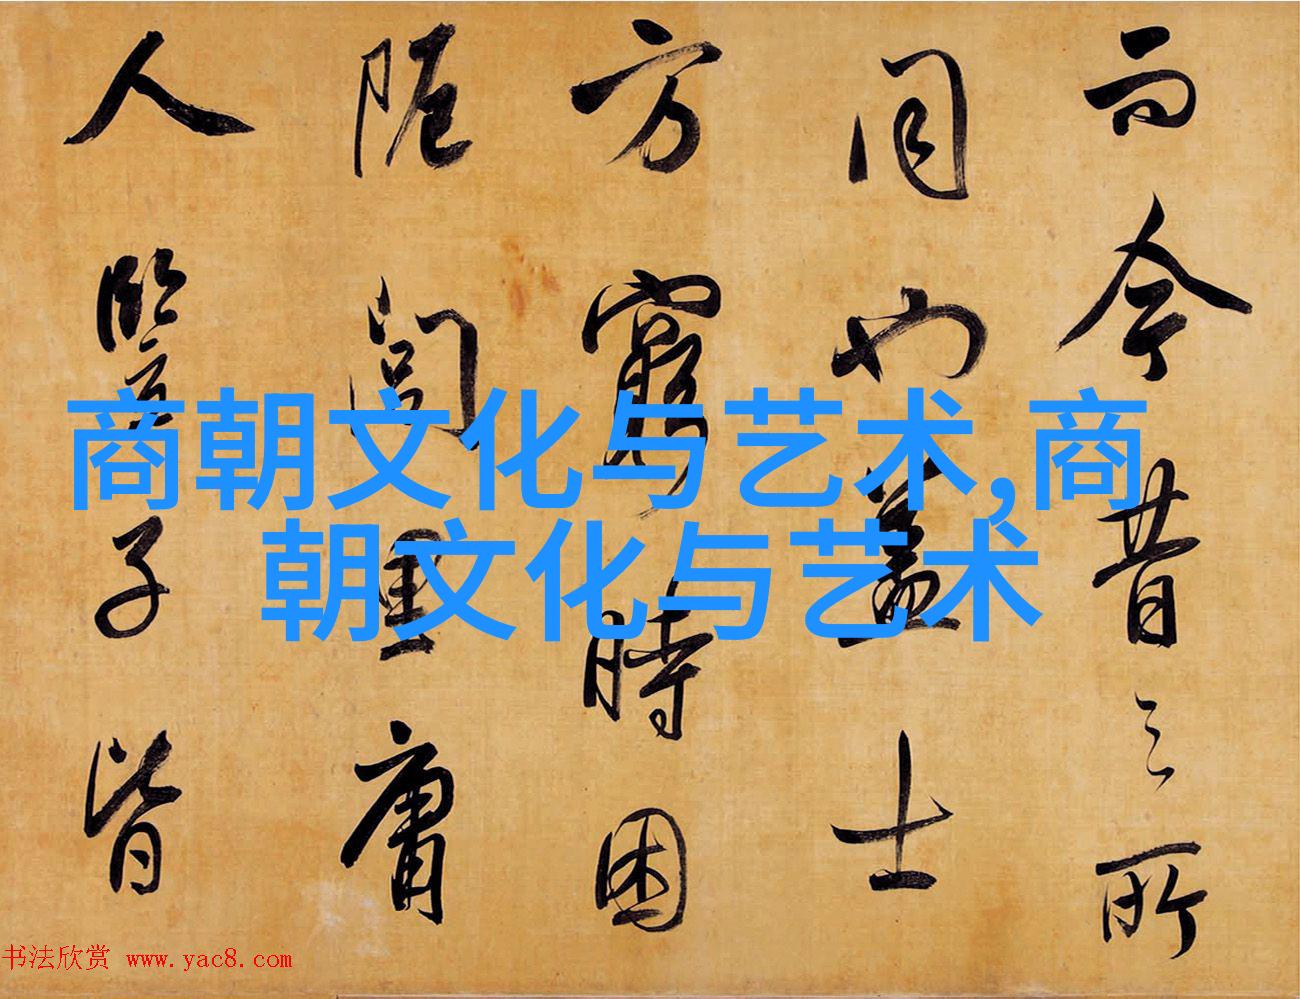 而今昔之所
同也蓋士
方窮時困
阨閭里庸
人豎子皆
商朝文化与艺术,商
朝文化与艺术
书法欣赏 www.yac8.com